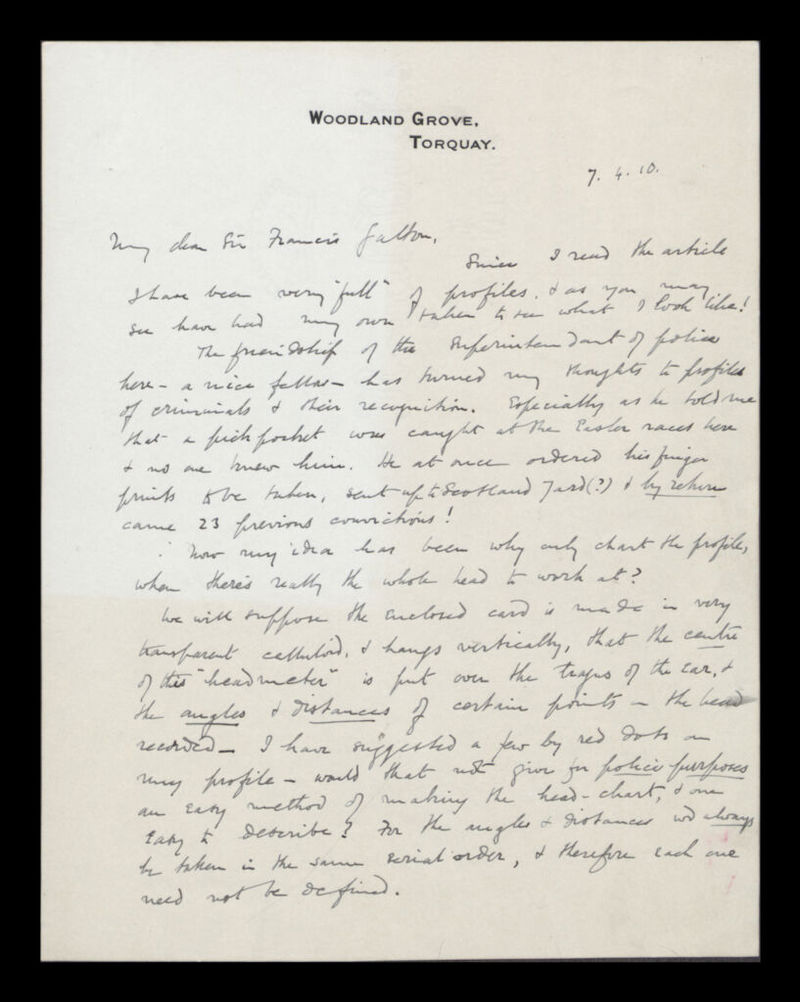 WOODLAND GROVE,
TORQUAY.
7. 4. 10.
My dear Sir Francis Galton,
Since I read the article
I have been very "full" of profiles, & as you may
see have had my own taken to see what I look like!
The friendship of the Superintendant of police
here - a nice fellow - has turned my thoughts to profiles
of criminals & their recognition. Especially as he told me
that a pickpocket was caught at the Easter races here
& no one knew him. He at once ordered his finger
prints to be taken, sent up to Scotland Yard (?) & by return
came 23 previous convictions!
Now my idea has been why only chart the profile,
when there's really the whole head to work at?
We will suppose the enclosed card is made in very
transparent celluloid, & hangs vertically, that the centre
of this "headmeter" is put over the tragus of the ear, &
the angles & distances of certain points on the head
recorded - I have suggested a few by red dots on
my profile - would that not give for police purposes
an easy method of making the head-chart, & one
easy to describe? For the angles & distances wd always
be taken in the same serial order, & therefore each one
need not be defined.